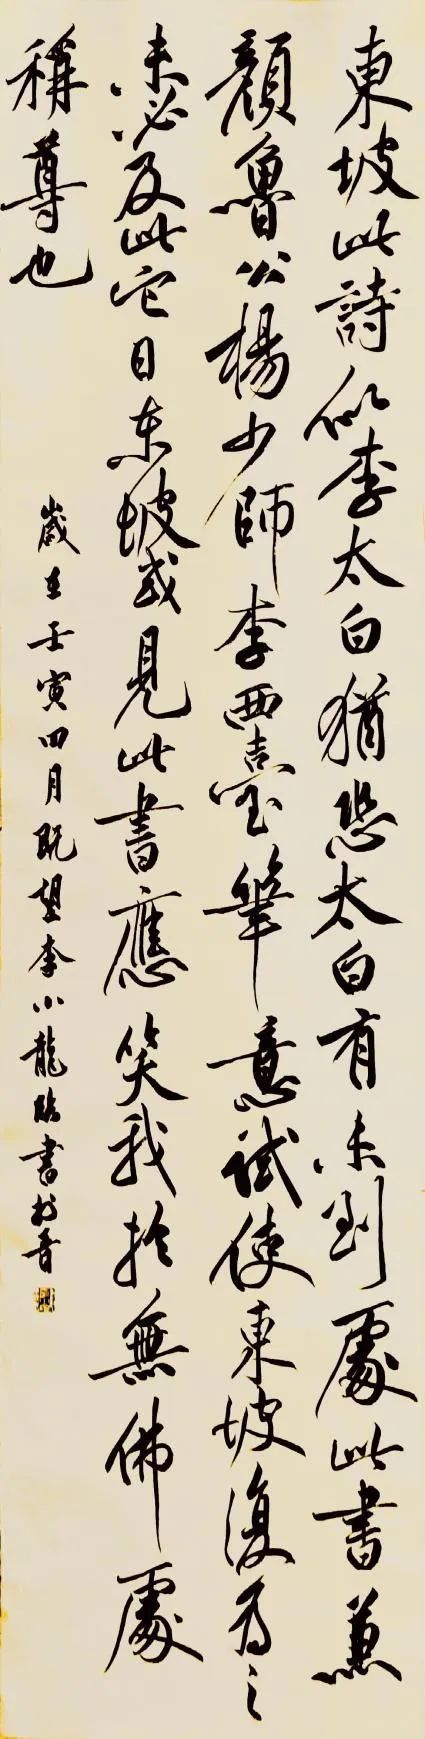 東坡此詩似李太白猶恐太白有未到處此書兼
顏魯公楊少師李西臺筆意試使東坡復為之
未必及此它日东坡或見此書應笑我於無佛處
稱尊也
歲在壬寅四月既望李小龍臨書於晋